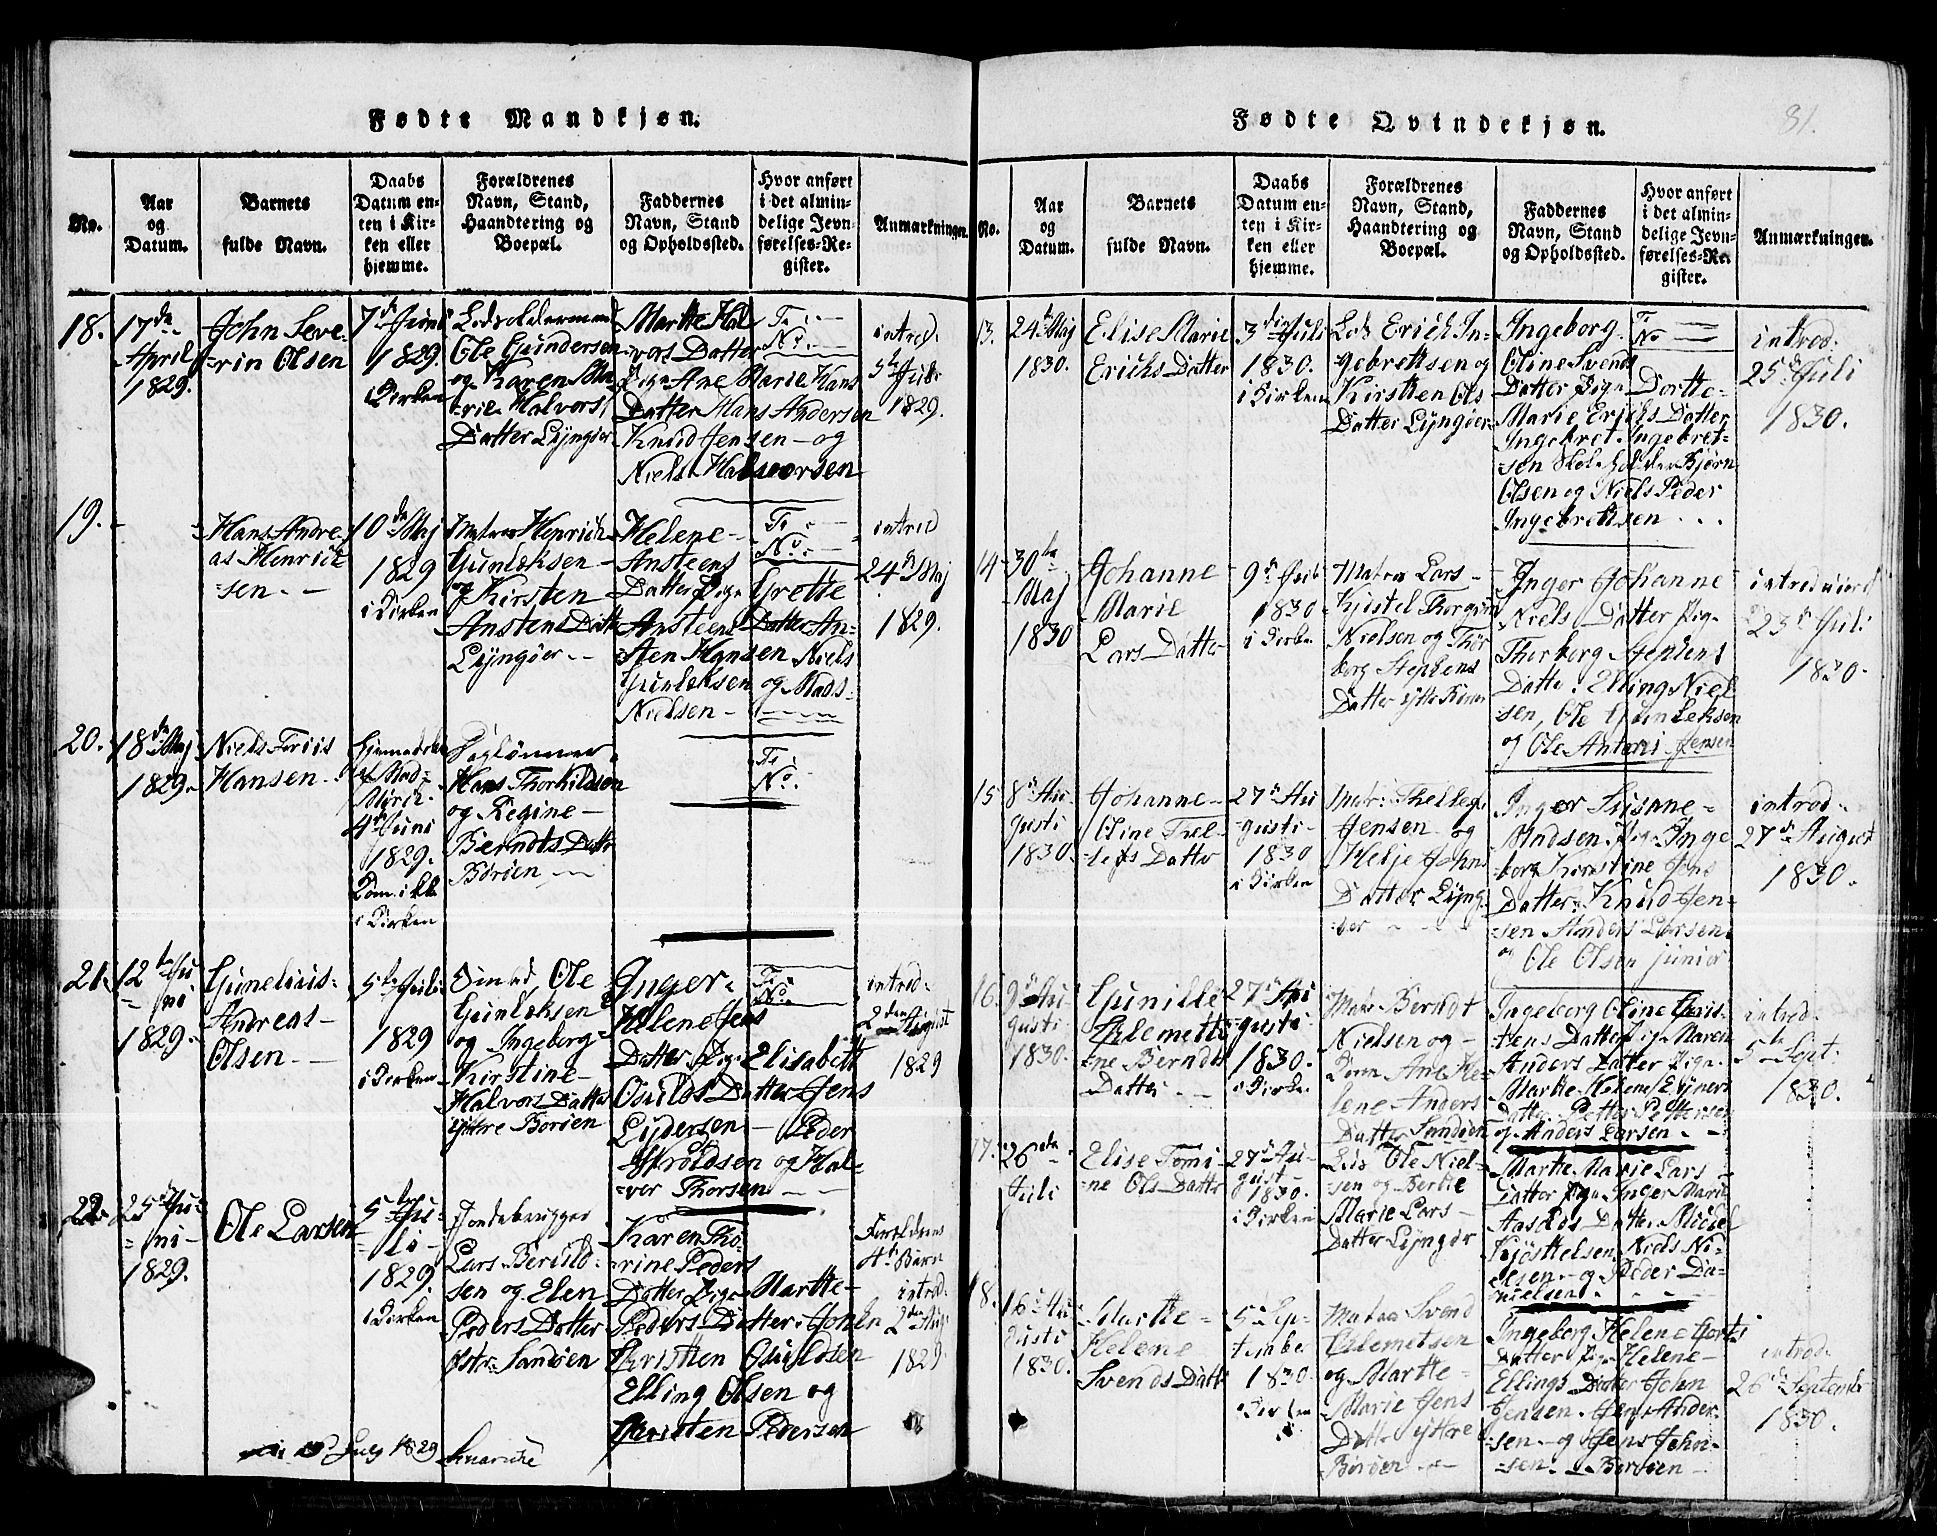 Fødte Mandkjøn.
No.
Aar
og
Datum.
Barnets
fulde Navn.
Daabs
Datum en-
ten i Kir-
ken eller
hjemme.
Forældrenes
Navn, Stand,
Haandtering og
Boepæl.
Faddernes
Navn, Stand
og Opholdssted.
Hvor anført
i det almin-
delige Jevn-
førelses-Re-
gister.
Anmærkninger.
18.
17de
April
1829.
John Seve-
rin Olsen
7de Juni
1829.
i Kirken
Lodsoldermand
Ole Gundersen
og Karen Ma-
rie Halvors
Datter Lyngøer
Marthe Hal-
vors Datter
Pige Ane Marie Hans
Datter Hans Andersen
Knud Jensen og
Niels Halvorsen
F.
No.
introd.
5te Juli
1829.
19.
Hans Andre-
as Henrich-
sen.
10de Maj
1829
i Kirken
Matros Henrich
Gunleksen
og Kirsten
Anstens Datter
Lyngøer
Helene
Ansteens
Datter Pige Grette
Ansteens Datter An-
sten Hansen Niels
Gunleksen og Mads
Nielsen
F.
No.
introd
24de Maj
1829.
20.
18de Maj
1829.
Niels Friis
Hansen
Hjemmedøbt
4de Juni
1829.
Kom. ikke
i Kirken
Daglønner
Hans Thorkildsen
og Regine
Berndts Datter
Borøen
F.
No.
21.
12te Ju-
ni
1829.
Gunelius
Andreas
Olsen
5te Juli
1829
i Kirken
Ole
Gunleksen
og Ingeborg
Kirstine
Halvors Datter
Yttre Borøen
Inger
Helene Jens
Datter Pige Elisabeth
Osulds Datter Jens
Lydersen Peder
Askoldsen og Hal-
vor Thorsen
F.
No.
introd.
2den August
1829
22.
25de Ju-
ni
1829.
Ole Larsen
5te Ju-
li
1829.
i Kirken
Jordebrugger
Lars Beruld-
sen og Elen
Peders Datter
Østr. Sandøen
Karen Tho-
rine Peders
Datter Pige Marthe
Peders Datter John
Christten Osuldsen
Elling Olsen og
Christen Pedersen
Forældrenes
4de Barn
introd.
2den Aug
1829.
July 1829
Fødte Qvindekjøn.
81.
No.
Aar
og
Datum.
Barnets
fulde Navn.
Daabs
Datum en-
ten i Kir-
ken eller
hjemme.
Forældrenes
Navn, Stand,
Haandtering og
Boepæl.
Faddernes
Navn, Stand
og Opholdssted.
Hvor anført
i det almin-
delige Jevn-
førelses-Re-
gister.
Anmærkninger.
13.
24de Maj
1830.
Elise Marie
Erichs Datter
3die Juli
1830.
i Kirken
Lods Erich In-
gebrettsen og
Kirstten Ols
Datter Lyngøer
Ingeborg
Oline Svends
Datter Pige Dorthe
Marie Erichs Datter
Ingebret Ingebret-
sen Skoleholder Bjørn
Olsen og Niels Peder
Ingebrettsen
F.
No
introd.
25de Juli
1830.
14
30te
Maj
1830
Johanne
Marie
Lars Datter
9de Juli
1830
i Kirken
Matros Lars
Nielsen og Thor
borg Stephens
Datter Ytte Borøen
Inger Johanne
Niels Datter Pige
Thorborg Stephens
Datter. Elling Niel
sen, Ole Gunleksen
og Ole Antoni Jensen
introduceret
23de Juli
1830.
15
8de Au-
gusti
1830.
Johanne
Oline Thel-
lefs Datter
27de Au-
gusti
1830
i Kirken
Matr: Thellef
Jensen og
Helje Johns
Datter Lyng-
øer
Inger Susanne
Madsen Pige Inge
borg Kirstine Jens
Datter, Knud Jen-
sen Anders Larsen
og Ole Olsen junior
introd.
27de August
1830.
16.
9de Au-
gusti
1830.
Gunille
Clemetti-
ne Berndts
Datter
27de Au-
gusti
1830.
i Kirken
Matr. Berndt
Nielsen og
Kone Ane He-
lene Anders
Datter Sandøen
Ingeborg Oline Chris-
tens Datter Pige Maren
Anders Datter Pige
Marthe Helene Ejners
Datter Petter Pettersen
og Anders Larsen
introd.
5te Sept.
1830.
17.
26de
Juli
Elise Tomi-
ne Ols Datter
27de Au-
gust
1830.
i Kirken
Lods Ole Niel-
sen og Berthe
Marie Lars
Datter Lyngør
Marthe Marie Lars
Datter Pige Inger Marie
Aaskolds Datter Michel
Kjøsttelsen Niels Ni-
elsen og Peder Da-
nielsen
18.
16de Au-
gusti
1830.
Marthe
Helene
Svends Datter
5te Sep-
tember
1830.
i Kirken
Matros Svend
Clemetsen
og Marthe
Marie Jens
Datter Yttre
Borøen
Ingeborg Helene Gjerts
Datter Pige Helene
Ellings Datter John
Jensen Jens Ander-
sen og Jens John-
sen Borøen
introd.
26de September
1830.